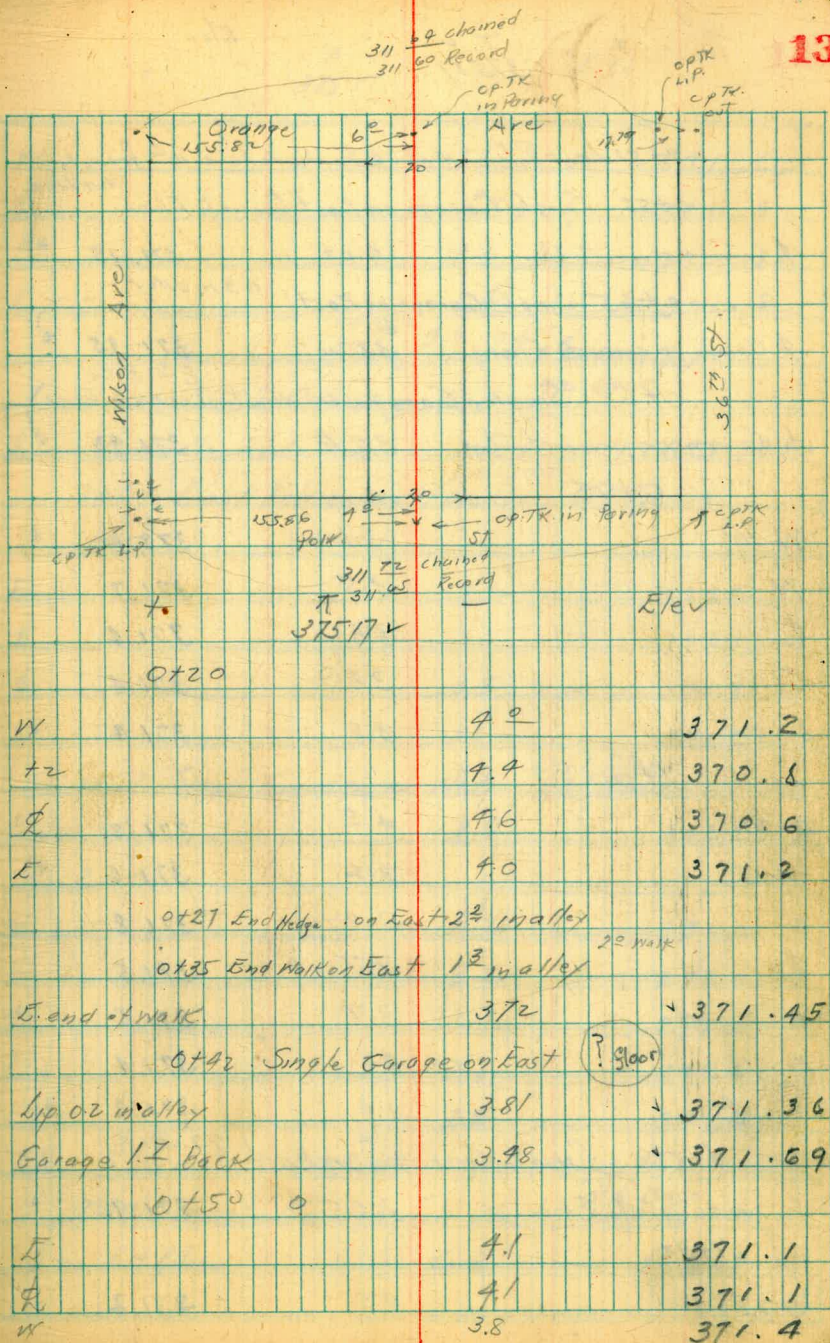 311 64 chained
311 60 Record
13
cp.TK in Paving
cp TK L.P.
cp TK. out
Orange 6º Ave
155.82 17.79
20
Wilson Ave
36TH St.
20
155.86 4º cp.TK in Paving cp TK L.P.
cp TK L.P. Polk St
311 72 chained
311 65 Record
+ π — Elev
37517 ✓
0+20
W 4º 371.2
+2 4.4 370.8
℄ 4.6 370.6
E 4.0 371.2
0+27 End Hedge on East 2² in alley
0+35 End Walk on East 1³ in alley 2º Walk
E. end of walk 372 ✓ 371.45
0+42 Single Garage on East ? floor
Lip 0.2 in alley 3.81 ✓ 371.36
Garage 1.7 Back 3.48 ✓ 371.69
0+50
E 4.1 371.1
℄ 4.1 371.1
W 3.8 371.4